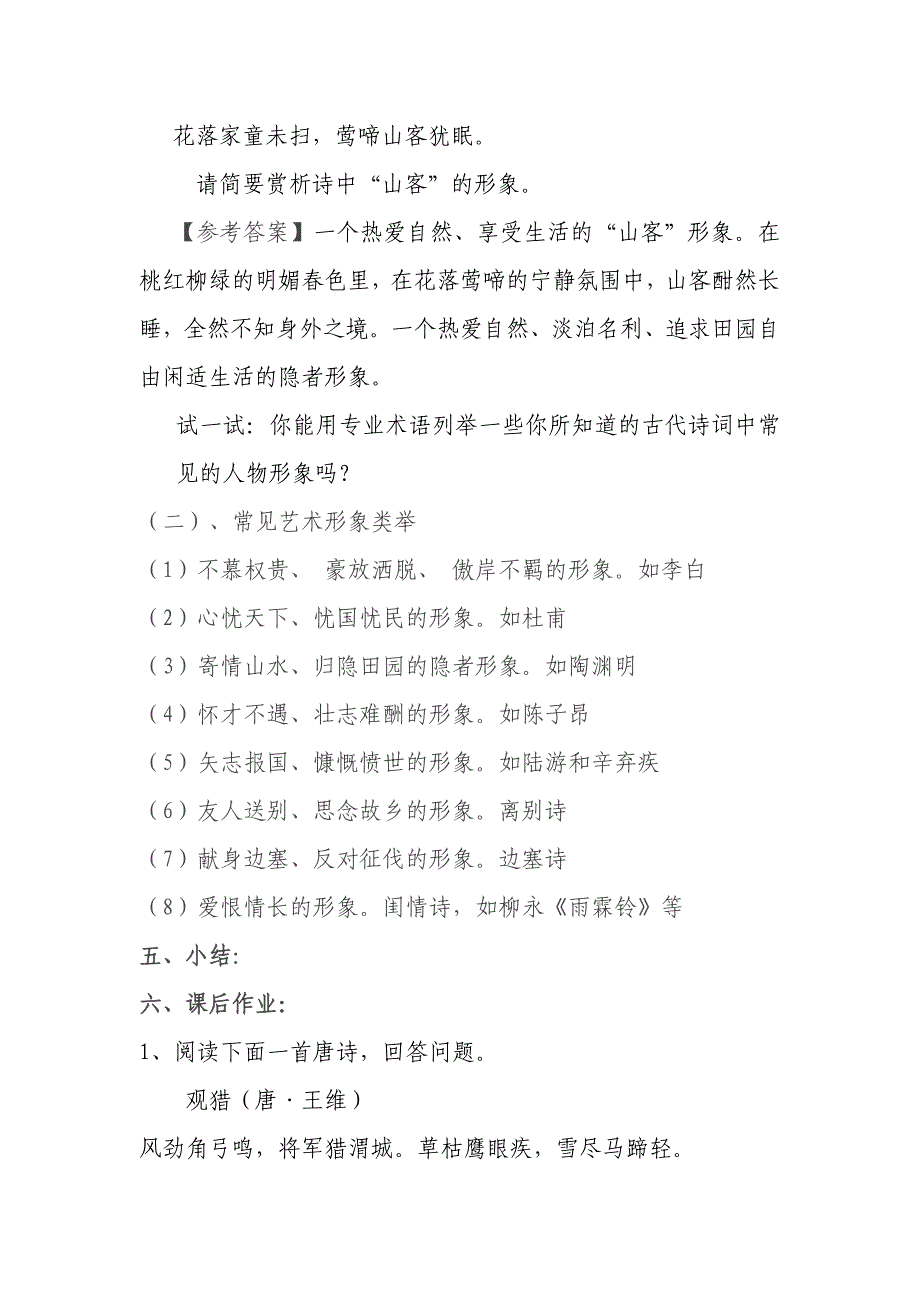 花落家童未扫，莺啼山客犹眠。
请简要赏析诗中“山客”的形象。
【参考答案】一个热爱自然、享受生活的“山客”形象。在
桃红柳绿的明媚春色里，在花落莺啼的宁静氛围中，山客酣然长
睡，全然不知身外之境。一个热爱自然、淡泊名利、追求田园自
由闲适生活的隐者形象。
试一试：你能用专业术语列举一些你所知道的古代诗词中常
见的人物形象吗？
（二）、常见艺术形象类举
（1）不慕权贵、 豪放洒脱、 傲岸不羁的形象。如李白
（2）心忧天下、忧国忧民的形象。如杜甫
（3）寄情山水、归隐田园的隐者形象。如陶渊明
（4）怀才不遇、壮志难酬的形象。如陈子昂
（5）矢志报国、慷慨愤世的形象。如陆游和辛弃疾
（6）友人送别、思念故乡的形象。离别诗
（7）献身边塞、反对征伐的形象。边塞诗
（8）爱恨情长的形象。闺情诗，如柳永《雨霖铃》等
五、小结：
六、课后作业：
1、阅读下面一首唐诗，回答问题。
观猎（唐·王维）
风劲角弓鸣，将军猎渭城。草枯鹰眼疾，雪尽马蹄轻。